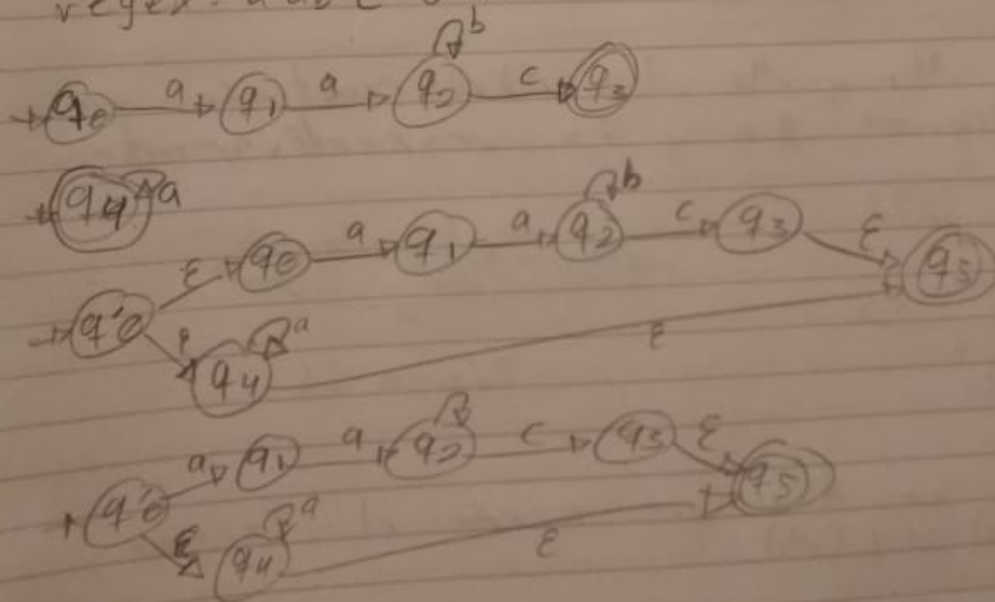 q0 a q1 a q2 b c q3
q4 a
ε q0 a q1 a q2 b c q3 ε q5
q'0 ε q4 a ε
a q1 a q2 c q3 ε q5
q'0 ε q4 a ε